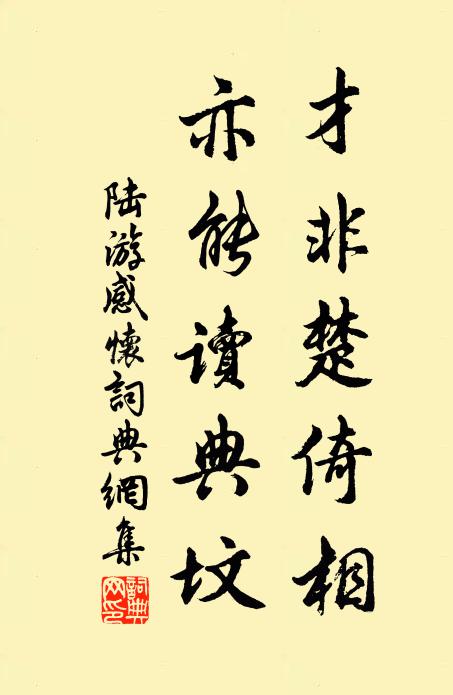 才非楚倚相
亦能讀典坟
陆游感懷詞典網集
詞典网印